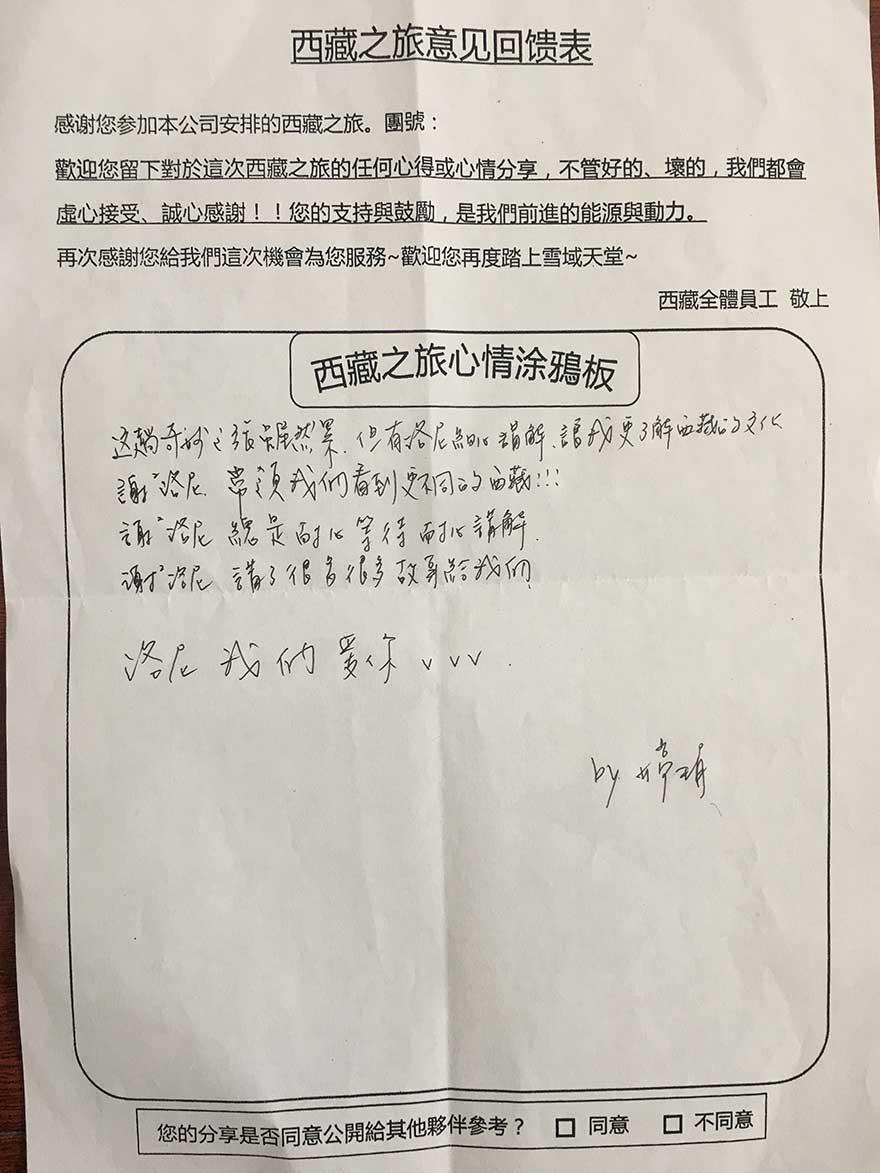 西藏之旅意见回馈表
感谢您参加本公司安排的西藏之旅。團號：
歡迎您留下對於這次西藏之旅的任何心得或心情分享，不管好的、壞的，我們都會
虛心接受、誠心感謝！！您的支持與鼓勵，是我們前進的能源與動力。
再次感謝您給我們這次機會為您服務~歡迎您再度踏上雪域天堂~
西藏全體員工 敬上
西藏之旅心情涂鴉板
这趟奇妙之旅雖然累，但有洛尼細心講解、讓我更了解西藏的文化
謝謝洛尼 帶領我們看到更不同的西藏!!!
謝謝洛尼 總是耐心等待 耐心講解.
謝謝洛尼 講了很多很多故事給我們
洛尼 我们 愛你 v v v .
by 婷
您的分享是否同意公開給其他夥伴參考？ □ 同意 □ 不同意